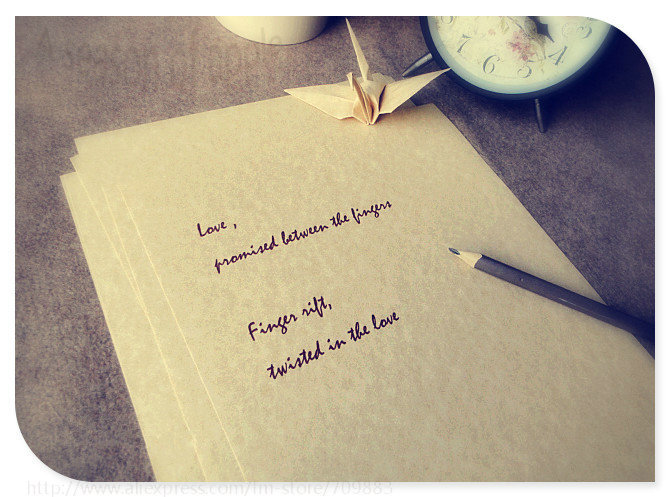 Love ,
promised between the fingers
Finger rift,
twisted in the love
http://www.aliexpress.com/fm-store/709883